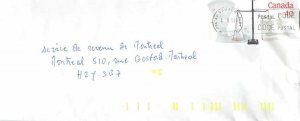 Canada
POSTAL
CODE POSTAL
Service de revenu de Montreal
Montreal 510, rue Gosford Montreal
H2Y 3B7